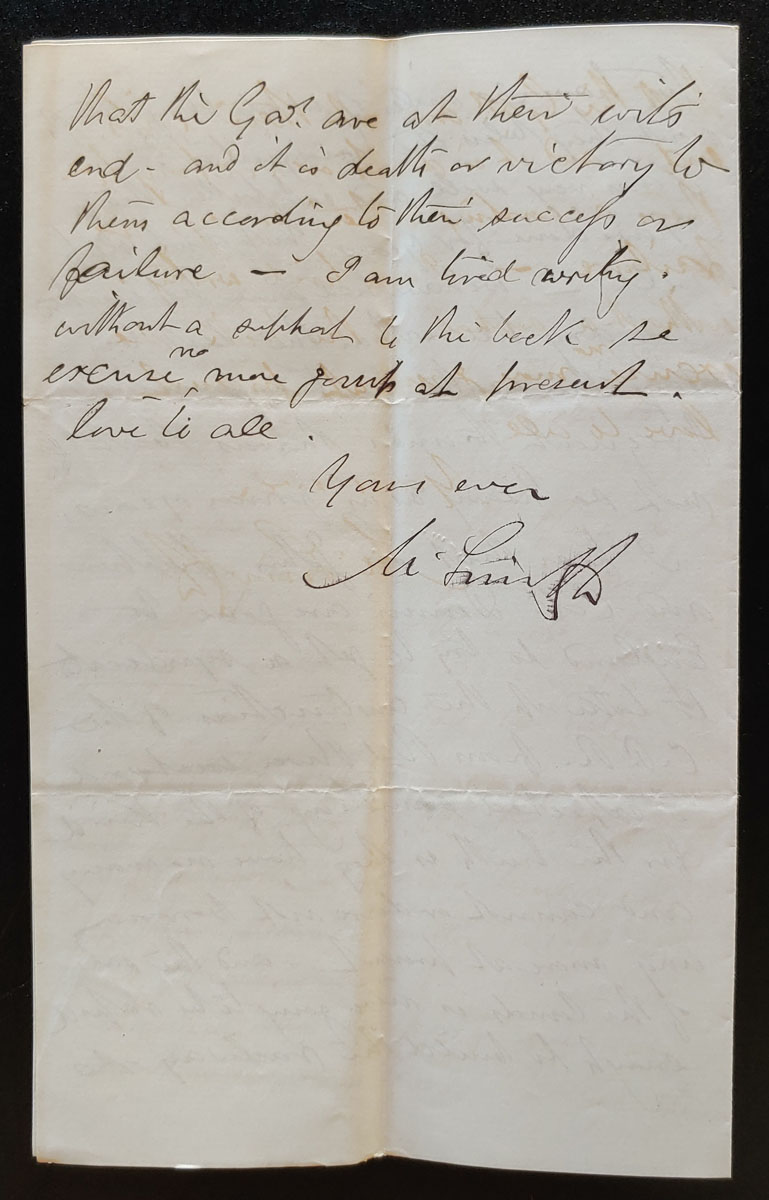 that the Govt. are at their wits
end - and it is death or victory to
them according to their success or
failure — I am tired writing.
without a support to the back so
excuse no more gossip at present.
love to all.
Yours ever
M. Smith